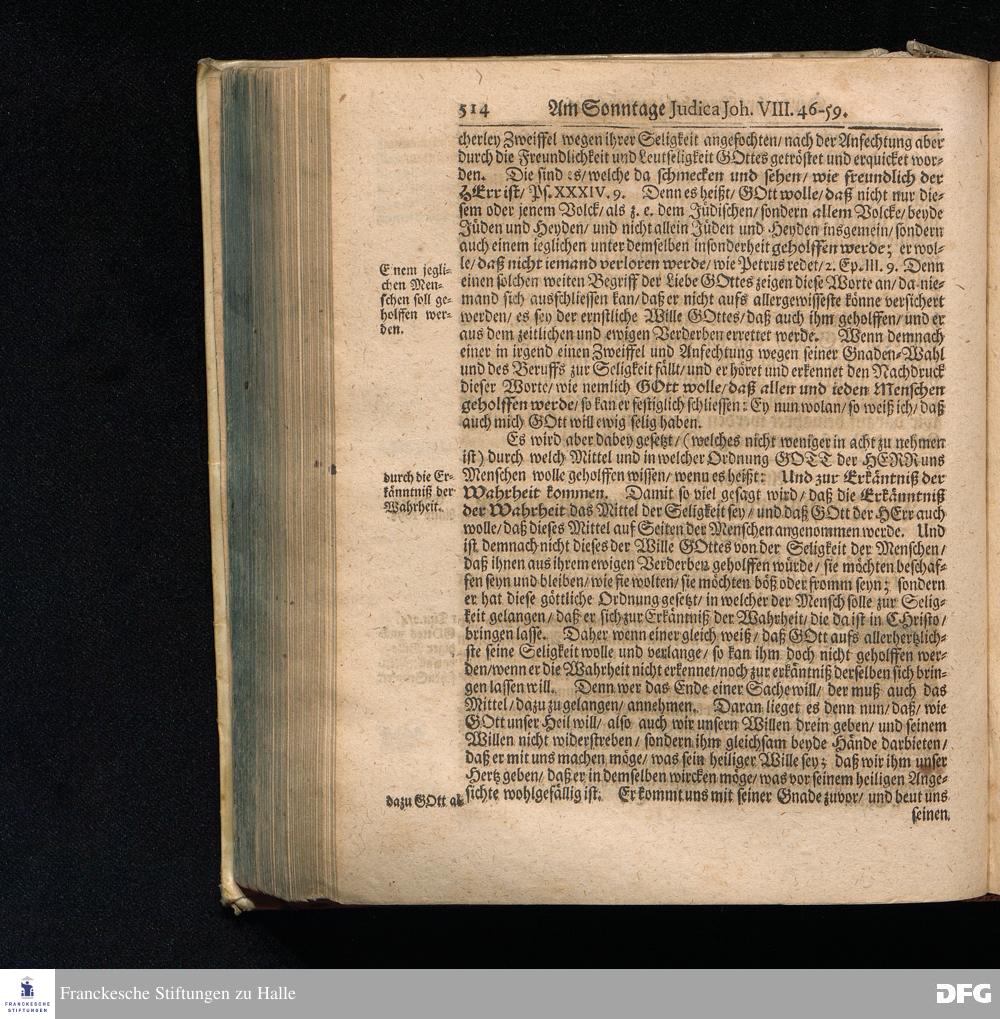 514 Am Sonntage Judica Joh. VIII. 46-59.
cherley Zweiffel wegen ihrer Seligkeit angefochten/ nach der Anfechtung aber
durch die Freundlichkeit und Leutseligkeit GOttes getröstet und erquicket wor-
den. Die sind es/ welche da schmecken und sehen/ wie freundlich der
HErr ist/ Ps. XXXIV. 9. Denn es heißt/ GOtt wolle/ daß nicht nur die-
sem oder jenem Volck/ als z. e. dem Jüdischen/ sondern allem Volcke/ beyde
Jüden und Heyden/ und nicht allein Jüden und Heyden insgemein/ sondern
auch einem ieglichen unter demselben insonderheit geholffen werde; er wol-
le/ daß nicht iemand verloren werde/ wie Petrus redet/ 2. Ep. III. 9. Denn
einen solchen weiten Begriff der Liebe GOttes zeigen diese Worte an/ da nie-
mand sich ausschliessen kan/ daß er nicht aufs allergewisseste könne versichert
werden/ es sey der ernstliche Wille GOttes/ daß auch ihm geholffen/ und er
aus dem zeitlichen und ewigen Verderben errettet werde. Wenn demnach
einer in irgend einen Zweiffel und Anfechtung wegen seiner Gnaden-Wahl
und des Beruffs zur Seligkeit fällt/ und er höret und erkennet den Nachdruck
dieser Worte/ wie nemlich GOtt wolle/ daß allen und ieden Menschen
geholffen werde/ so kan er festiglich schliessen: Ey nun wolan/ so weiß ich/ daß
auch mich GOtt will ewig selig haben.
E nem jegli-
chen Men-
schen soll ge-
holffen wer-
den.
Es wird aber dabey gesetzt/ (welches nicht weniger in acht zu nehmen
ist) durch welch Mittel und in welcher Ordnung GOTT der HERR uns
Menschen wolle geholffen wissen/ wenn es heißt: Und zur Erkäntniß der
Wahrheit kommen. Damit so viel gesagt wird/ daß die Erkänntniß
der Wahrheit das Mittel der Seligkeit sey/ und daß GOtt der HErr auch
wolle/ daß dieses Mittel auf Seiten der Menschen angenommen werde. Und
ist demnach nicht dieses der Wille GOttes von der Seligkeit der Menschen/
daß ihnen aus ihrem ewigen Verderben geholffen würde/ sie möchten beschaf-
fen seyn und bleiben/ wie sie wolten/ sie möchten böß oder fromm seyn; sondern
er hat diese göttliche Ordnung gesetzt/ in welcher der Mensch solle zur Selig-
keit gelangen/ daß er sich zur Erkäntniß der Wahrheit/ die da ist in CHristo/
bringen lasse. Daher wenn einer gleich weiß/ daß GOtt aufs allerhertzlich-
ste seine Seligkeit wolle und verlange/ so kan ihm doch nicht geholffen wer-
den/ wenn er die Wahrheit nicht erkennet/ noch zur erkäntniß derselben sich brin-
gen lassen will. Denn wer das Ende einer Sache will/ der muß auch das
Mittel/ dazu zu gelangen/ annehmen. Daran lieget es denn nun/ daß/ wie
GOtt unser Heil will/ also auch wir unsern Willen drein geben/ und seinem
Willen nicht widerstreben/ sondern ihm gleichsam beyde Hände darbieten/
daß er mit uns machen möge/ was sein heiliger Wille sey; daß wir ihm unser
Hertz geben/ daß er in demselben wircken möge/ was vor seinem heiligen Ange-
sichte wohlgefällig ist. Er kommt uns mit seiner Gnade zuvor/ und beut uns
seinen
durch die Er-
känntniß der
Wahrheit.
dazu GOtt al-
Franckesche Stiftungen zu Halle
FRANCKESCHE
STIFTUNGEN
DFG